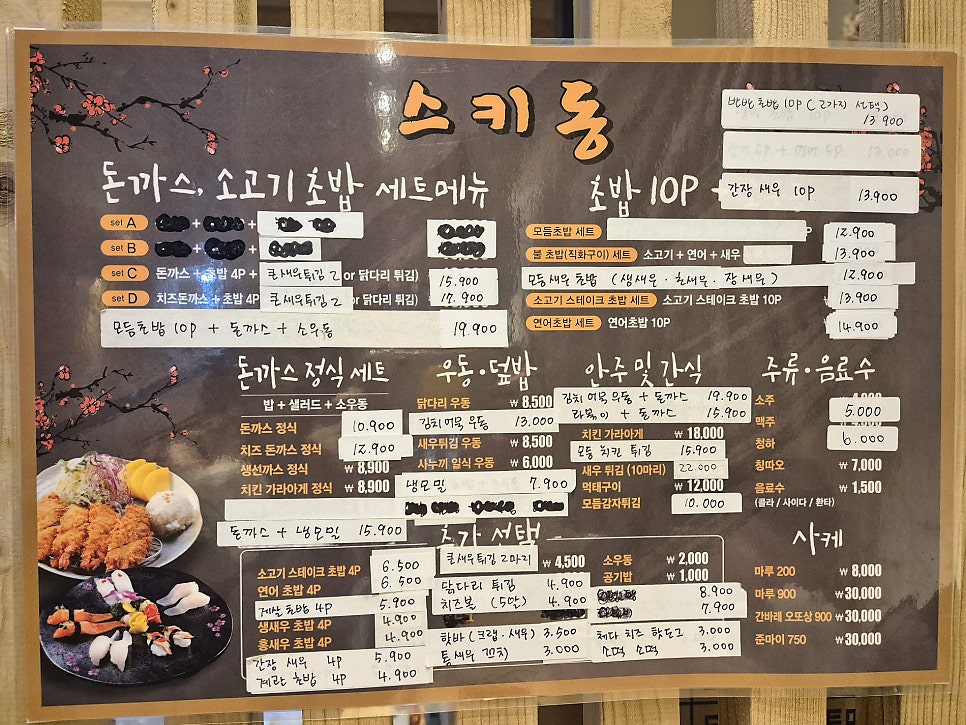 스키동
반반 초밥 10P (2가지 선택)
13.900
간장 새우 10P 13.900
돈까스, 소고기 초밥 세트메뉴
set A + +
set B + +
set C 돈까스 + 초밥 4P + 큰새우튀김 2 or 닭다리 튀김) 15.900
set D 치즈돈까스 + 초밥 4P 큰새우튀김 2 or 닭다리 튀김) 17.900
모듬초밥 10P + 돈까스 + 소우동 19.900
초밥 10P
모듬초밥 세트 12.900
불 초밥(직화구이) 세트 소고기 + 연어 + 새우 13.900
모듬새우 초밥 (생새우 · 초새우 · 장새우) 12.900
소고기 스테이크 초밥 세트 소고기 스테이크 초밥 10P 13.900
연어초밥 세트 연어초밥 10P 14.900
돈까스 정식 세트
밥 + 샐러드 + 소우동
돈까스 정식 10.900
치즈 돈까스 정식 12.900
생선까스 정식 ₩ 8,900
치킨 가라아게 정식 ₩ 8,900
돈까스 + 냉모밀 15.900
우동·덮밥
닭다리 우동 ₩ 8,500
김치어묵 우동 13.000
새우튀김 우동 ₩ 8,500
사누끼 일식 우동 ₩ 6,000
냉모밀 7.900
안주 및 간식
김치어묵우동 + 돈까스 19.900
라볶이 + 돈까스 15.900
치킨 가라아게 ₩ 18,000
모듬 치킨 튀김 15.900
새우 튀김 (10마리) 22.000
먹태구이 ₩ 12,000
모듬감자튀김 10.000
주류·음료수
소주
맥주 5.000
청하 6.000
칭따오 ₩ 7,000
음료수 ₩ 1,500
(콜라 / 사이다 / 환타)
추가 선택
소고기 스테이크 초밥 4P 6.500
연어 초밥 4P 6.500
계살 초밥 4P 5.900
생새우 초밥 4P 4.900
홍새우 초밥 4P 4.900
간장 새우 4P 5.900
계란 초밥 4P 4.900
큰새우튀김 2마리 ₩ 4,500
닭다리 튀김 4.900
치즈볼 (5알) 4.900
핫바 (크랩·새우) 3.500
통새우 꼬치 3.000
소우동 ₩ 2,000
공기밥 ₩ 1,000
8.900
7.900
체다 치즈 핫도그 3.000
소떡 소떡 3.000
사케
마루 200 ₩ 8,000
마루 900 ₩ 30,000
간바레 오또상 900 ₩ 30,000
준마이 750 ₩ 30,000